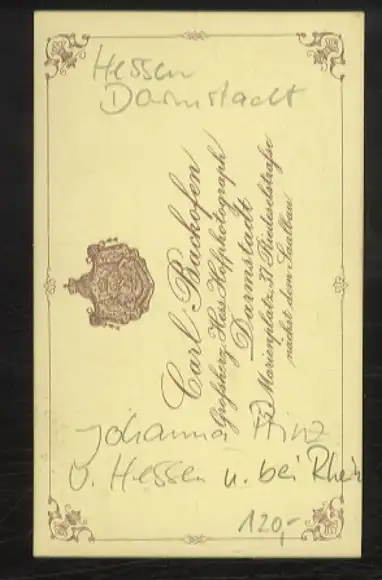 Hessen
Darmstadt
Carl Backofen
Großherz. Hess. Hofphotograph
Darmstadt
Marienplatz, 37 Riedeselstraße
nächst dem Saalbau
Johanna Prinz
v. Hessen u. bei Rhein
120,-